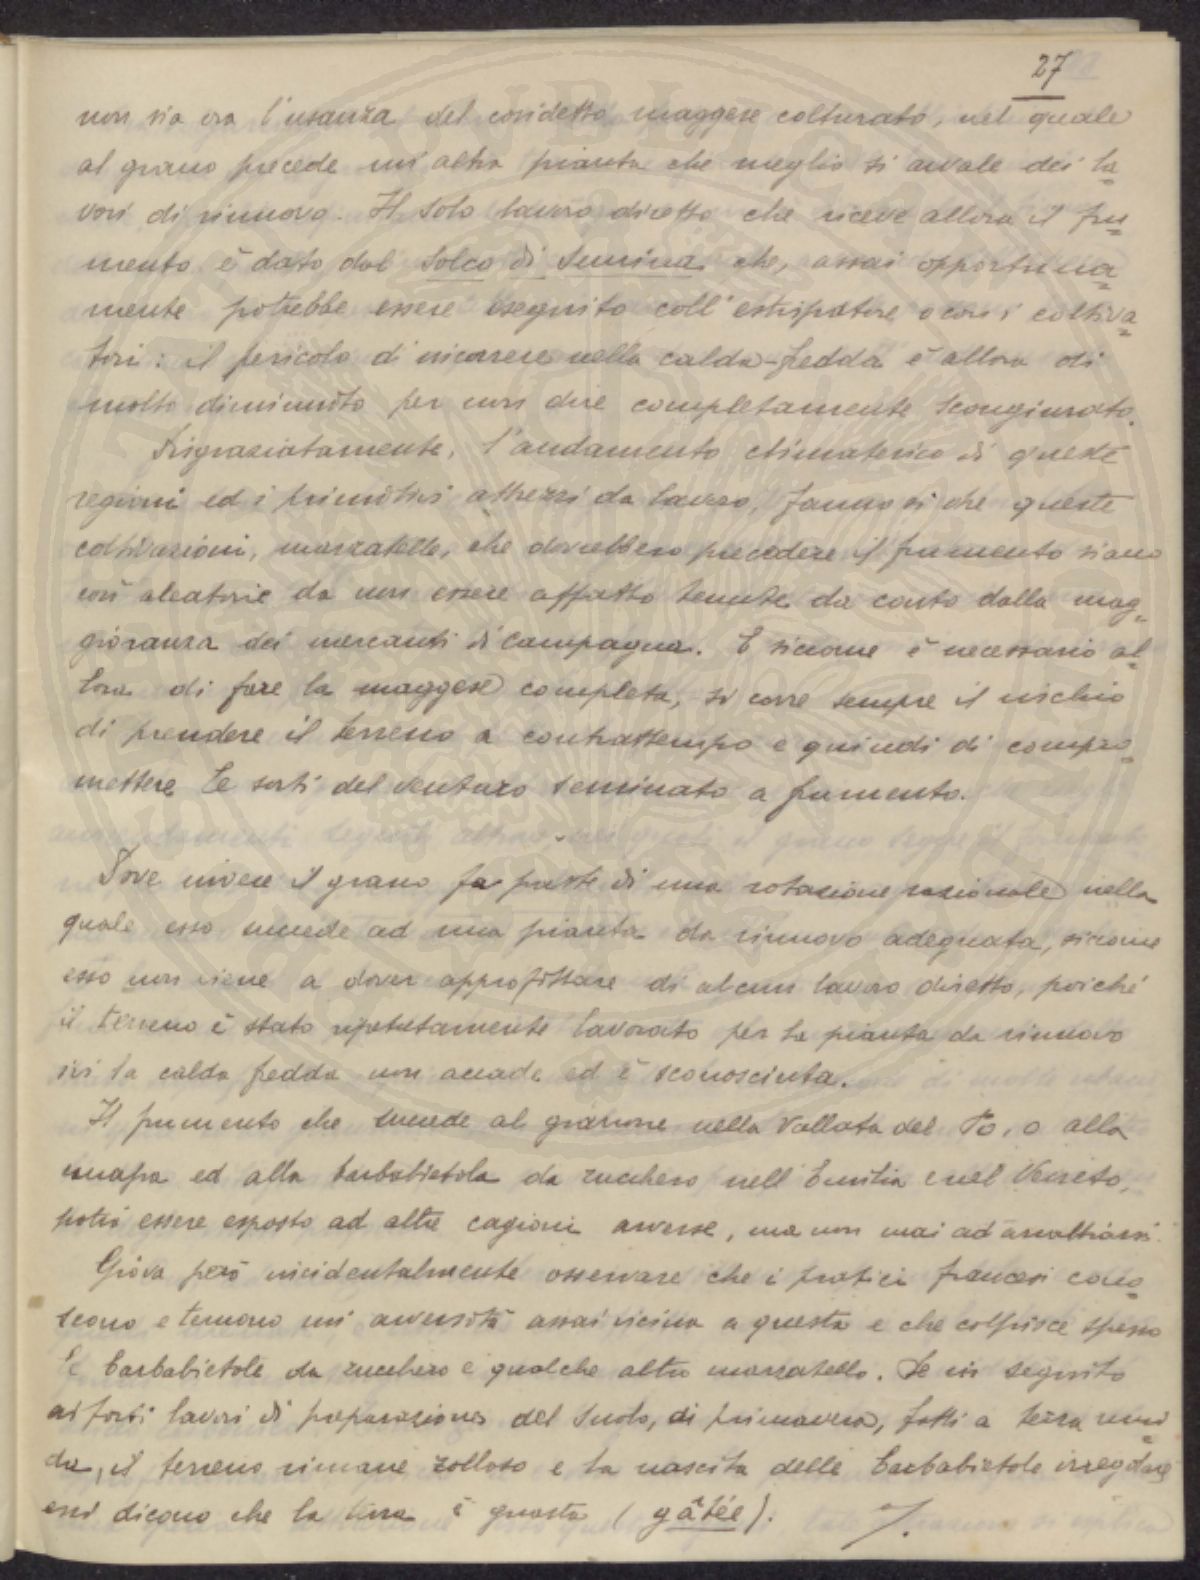 27
non sia ora l'usanza del cosidetto maggese colturato, nel quale
al grano precede un'altra pianta che meglio si avvale dei la
vori di rinnovo. Il solo lavoro diretto che riceve allora il fru
mento è dato dal solco di semina che, assai opportuna
mente potrebbe essere eseguito coll'estirpatore o con i coltiva
tori: il pericolo d'incorrere nella calda-fredda è allora di
molto diminuito per non dire completamente scongiurato.
Disgraziatamente, l'andamento climaterico di queste
regioni ed i primitivi attrezzi da lavoro, fanno si che queste
coltivazioni, marzatelle, che dovrebbero precedere il frumento siano
così aleatorie da non essere affatto tenute da conto dalla mag
gioranza dei mercanti di campagna. E siccome è necessario al
lora di fare la maggese completa, si corre sempre il rischio
di prendere il terreno a contrattempo e quindi di compro
mettere le sorti del venturo seminato a frumento.
Dove invece il grano fa parte di una rotazione razionale nella
quale esso succede ad una pianta da rinnovo adeguata, siccome
esso non viene a dover approfittare di alcun lavoro diretto, poiché
il terreno è stato ripetutamente lavorato per la pianta da rinnovo
ivi la calda fredda non accade ed è sconosciuta.
Il frumento che succede al granone nella Vallata del Po, o alla
canapa ed alla barbabietola da zucchero nell'Emilia e nel Veneto,
potrà essere esposto ad altre cagioni avverse, ma non mai ad arrabbiarsi.
Giova però incidentalmente osservare che i pratici francesi cono
scono e temono un'avversità assai vicina a questa e che colpisce spesso
le barbabietole da zucchero e qualche altro marzatello. Se in seguito
ai forti lavori di preparazione del suolo, di primavera, fatti a terra umi
da, il terreno rimane zolloso e la nascita delle barbabietole irregolare
essi dicono che la terra è guasta (gâtée).